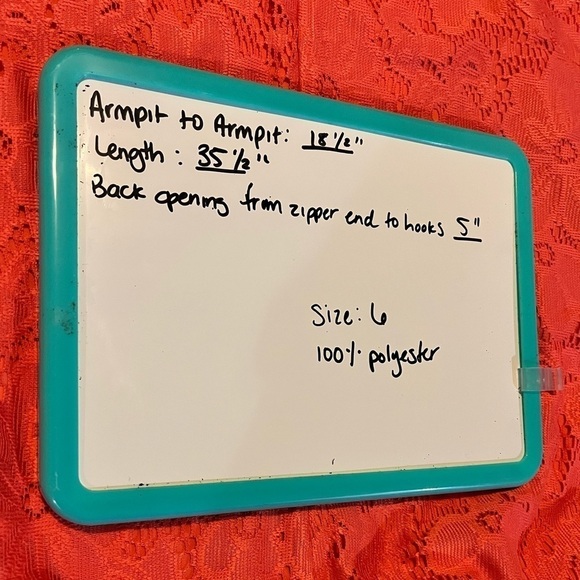 Armpit to Armpit: 18 1/2"
Length: 35 1/2"
Back opening from zipper end to hooks 5"
Size: 6
100% polyester